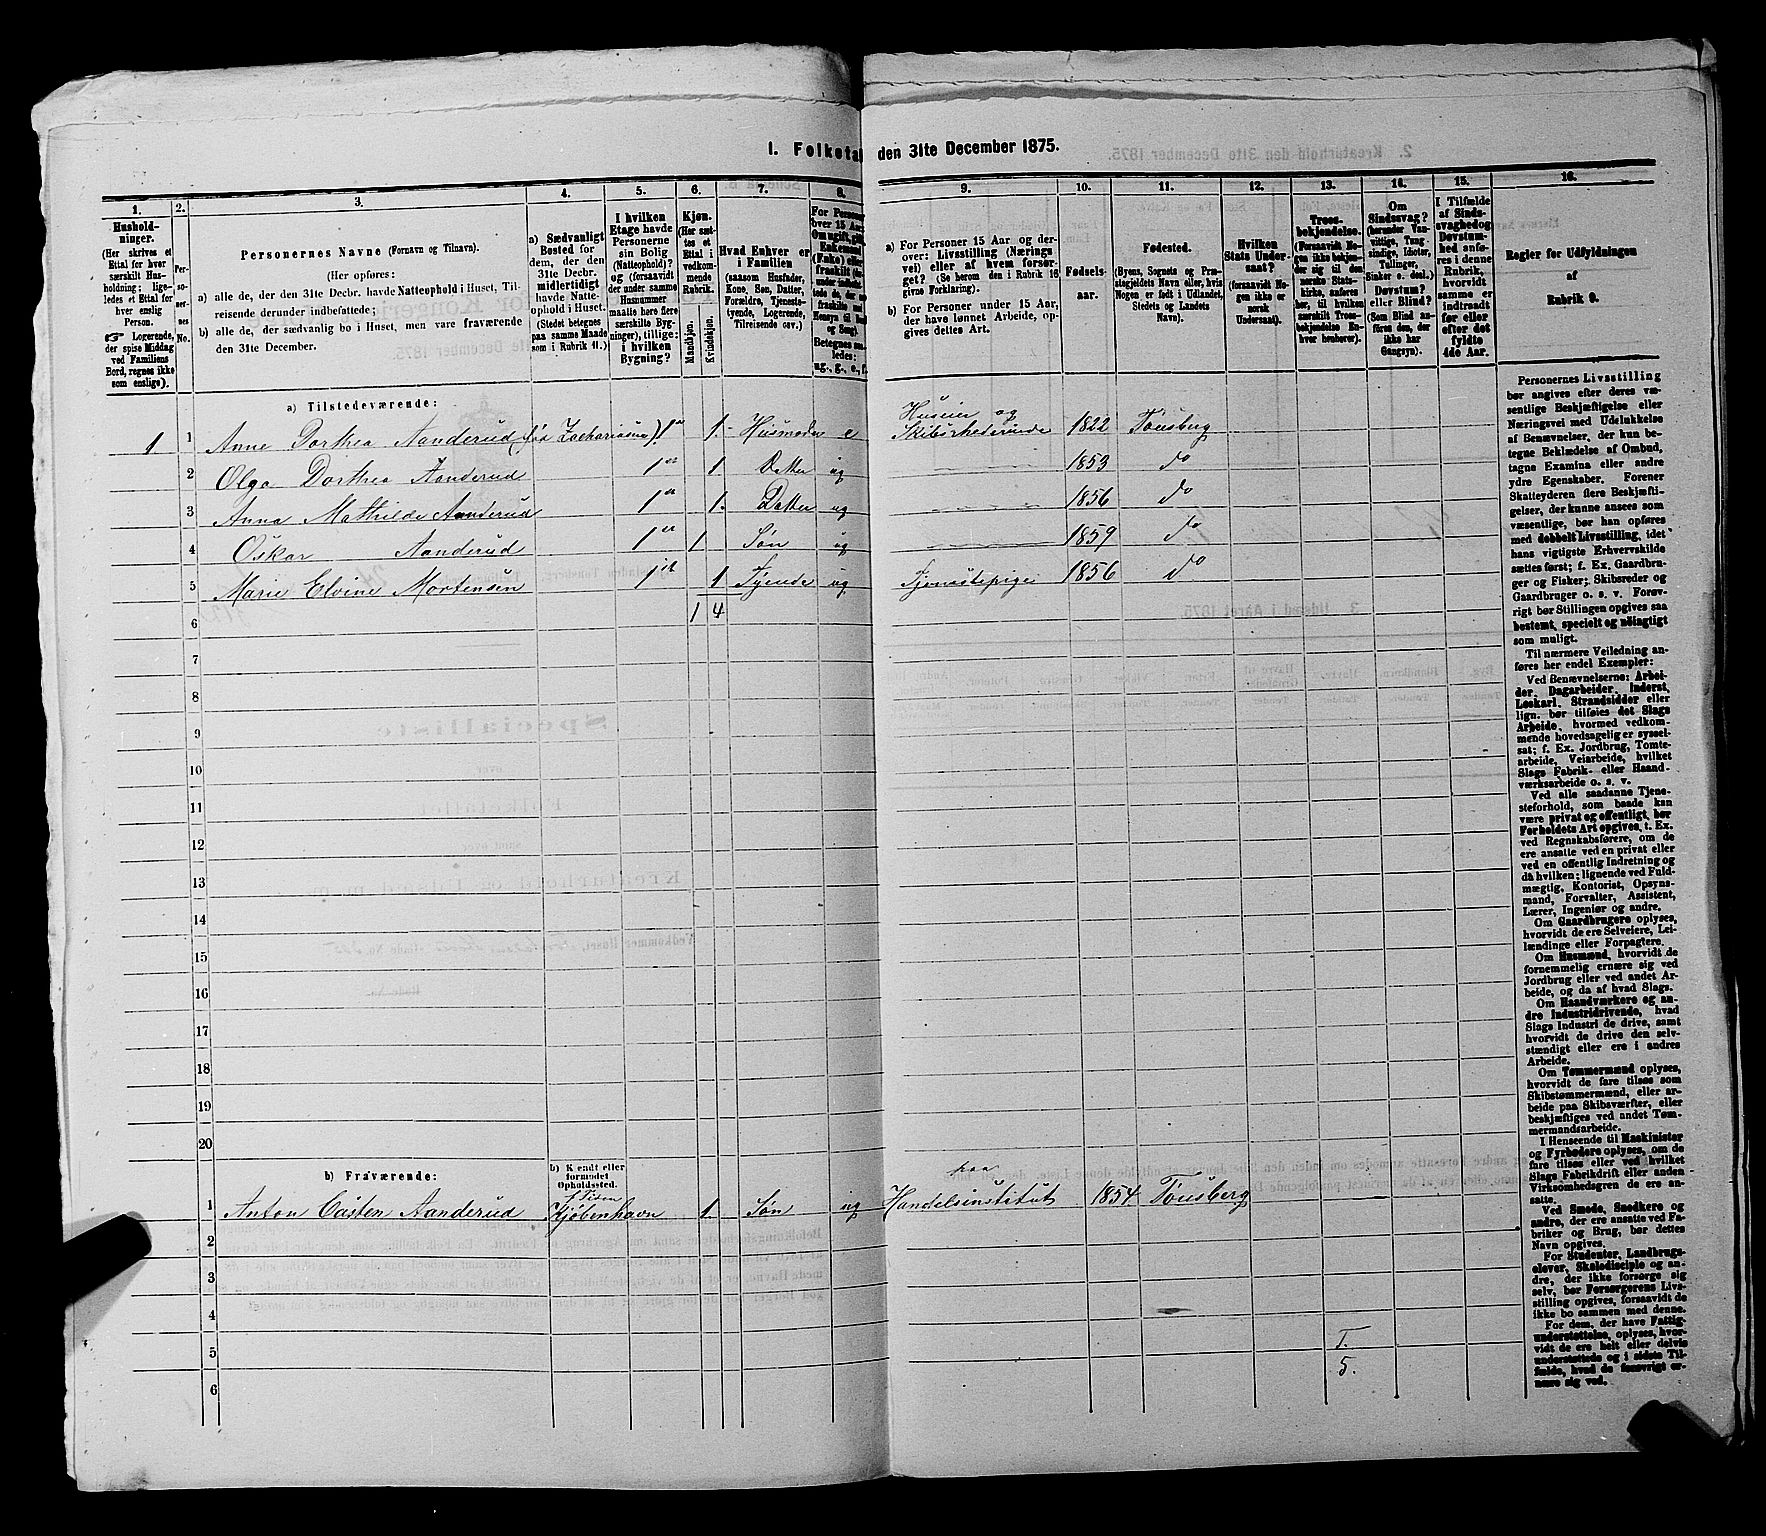 1. Folketal den 31te December 1875.
1. 2. 3. 4. 5. 6. 7. 8. 9. 10. 11. 12. 13. 14. 15. 16.
Husholdninger.
(Her skrives et
Ettal for hver
særskilt Husholdning;
ligeledes et Ettal for
hver enslig
Person.
☞ Logerende,
der spise Middag
ved Familiens
Bord, regnes ikke
som enslige).
Personernes No.
Personernes Navne (Fornavn og Tilnavn).
(Her opføres:
a) alle de, der den 31te Decbr. havde Natteophold i Huset, Tilreisende derunder indbefattede;
b) alle de, der sædvanlig bo i Huset, men vare fraværende
den 31te December.
a) Sædvanligt
Bosted for
dem, der den
31te Decbr.
midlertidigt
havde Natteophold i Huset.
(Stedet betegnes
paa samme Maade
som i Rubrik 11.)
I hvilken
Etage havde
Personerne
sin Bolig
(Natteophold)?
(forsaavidt
der under samme
Hasnummer
maatte høre flere
særskilte Bygninger), tillige:
i hvilken
Bygning?
Kjøn.
(Her sættes et
Ettal i
vedkommende
Rubrik.
Mandkjøn.
Kvindekjøn.
Hvad Enhver er
i Familien
(saasom Husfader,
Kone, Søn, Datter,
Forældre, Tjenestetyende, Logerende,
Tilreisende osv.)
a) For Personer 15 Aar og derover: Livsstilling (Næringsvei) eller af hvem forsørget? (Se herom den i Rubrik 16
givne Forklaring).
b) For Personer under 15 Aar,
der have lønnet Arbeide, opgives dettes Art.
Fødselsaar.
Fødested.
(Byens, Sognets og Præstegjeldets Navn eller, hvis
Nogen er født i Udlandet,
Stedets og Landets
Navn).
Hvilken
Stats Undersaat?
(forsaavidt Nogen ikke er
norsk
Undersaat).
Troesbekjendelse.
(Forsaavidt Nogen ikke bekjender sig til den
norske Statskirke, anføres
her, til hvilken
særskilt Troesbekjendelse Enhver henhører).
Om
Sindssvag?
(herunder Vanvittige, Tungsindige, Idioter,
Tullinger,
Sinker o. desl.)
Døvstum?
eller Blind?
(Som Blind anføres den, der
ikke har
Gangsyn).
I Tilfælde
af Sindssvaghed og
Døvstumhed anføres i denne
Rubrik,
hvorvidt
samme er
indtraadt
før eller
efter det
fyldte
4de Aar.
Regler for Udfyldningen
af
Rubrik 9.
a) Tilstedeværende:
1 1 Anne Dorthea Aanderud (fød Zachariasen) 1ste 1. Husmoder e Huseier og Skibsrhederinde 1822 Tønsberg
2 Olga Dorthea Aanderud 1ste 1. Datter ug 1853 do
3 Anna Mathilde Aanderud 1ste 1. Datter ug 1856 do
4 Oskar Aanderud 1ste 1 Søn ug 1859 do
5 Marie Elvine Mortensen 1ste 1 Tyende ug Tjenestepige 1856 do
6 1 4
7
8
9
10
11
12
13
14
15
16
17
18
19
20
b) Fraværende:
b) Kjendt eller
formodet
Opholdssted.
1 Anton Casten Aanderud Kjøbenhavn 1. Søn ug paa Handelsinstitut 1854 Tønsberg
2
3
4
5
6
T.
5.
Personernes Livsstilling
bør angives efter deres væsentlige Beskjæftigelse eller
Næringsvei med Udelukkelse
af Benævnelser, der kun betegne Beklædelse af Ombud,
tagne Examina eller andre
ydre Egenskaber. Forener
Skatteyderen flere Beskjæftigelser, der kunne ansees som
væsentlige, bør han opføres
med dobbelt Livsstilling, idet
hans vigtigste Erhvervskilde
sættes først; f. Ex. Gaardbruger og Fisker; Skibsreder og
Gaardbruger o. s. v. Forøvrigt bør Stillingen opgives saa
bestemt, specielt og nøiagtigt
som muligt.
Til nærmere Veiledning anføres her endel Exempler:
Ved Benævnelserne: Arbeider, Dagarbeider, Inderst,
Løskarl, Strandsidder eller
lign. bør tilføies det Slags
Arbeide, hvormed vedkommende hovedsagelig er sysselsat; f. Ex. Jordbrug, Tomtearbeide, Veiarbeide, hvilket
Slags Fabrik- eller Haandværksarbeide o. s. v.
Ved alle saadanne Tjenesteforhold, som baade kan
være privat og offentligt, bør
Forholdets Art opgives, t. Ex.
ved Regnskabsførere, om de
ere ansatte ved en privat eller
ved en offentlig Indretning og
da hvilken; lignende ved Fuldmægtig, Kontorist, Opsynsmand, Forvalter, Assistent,
Lærer, Ingeniør og andre.
Om Gaardbrugere oplyses,
hvorvidt de ere Selveiere, Leilændinge eller Forpagtere.
Om Husmænd, hvorvidt de
fornemmelig ernære sig ved
Jordbrug eller ved andet Arbeide, og da af hvad Slags.
Om Haandværkere og andre Industridrivende, hvad
Slags Industri de drive, samt
hvorvidt de drive den selvstændigt eller ere i andres
Arbeide.
Om Tømmermænd oplyses,
hvorvidt de fare tilsøs som
Skibstømmermænd, eller arbeide paa Skibsværfter, eller
beskjæftiges ved andet Tømmermandsarbeide.
I Henseende til Maskinister
og Fyrbødere oplyses, om de
fare tilsøs eller ved hvilket
Slags Fabrikdrift eller anden
Virksomhedsgren de ere ansatte.
Ved Smede, Snedkere og
andre, der ere ansatte ved Fabriker og Brug, bør dettes
Navn opgives.
For Studenter, Landbrugselever, Skoledisciple og andre, der ikke forsørge sig
selv, bør Forsørgerens Livsstilling opgives, forsaavidt de
ikke bo sammen med denne.
For dem, der have Fattigunderstøttelse, oplyses, hvorvidt de ere helt eller delvis
understøttede og i sidste Tilfælde, hvad de forøvrigt ernære sig ved.